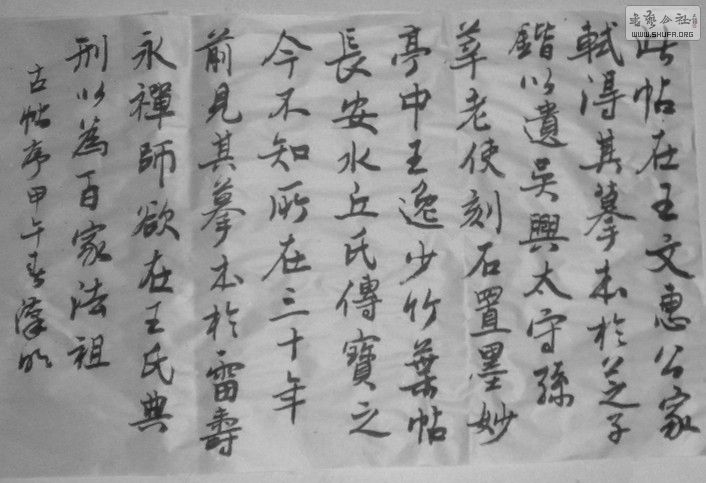 此帖在王文惠公家
軾得其摹本於公之子
鍇以遺吳興太守孫
莘老使刻石置墨妙
亭中王逸少竹葉帖
長安水丘氏傳寶之
今不知所在三十年
前見其摹本於雷壽
永禪師欲在王氏典
刑以為百家法祖
古帖序甲午春
書藝公社
WWW.SHUFA.ORG